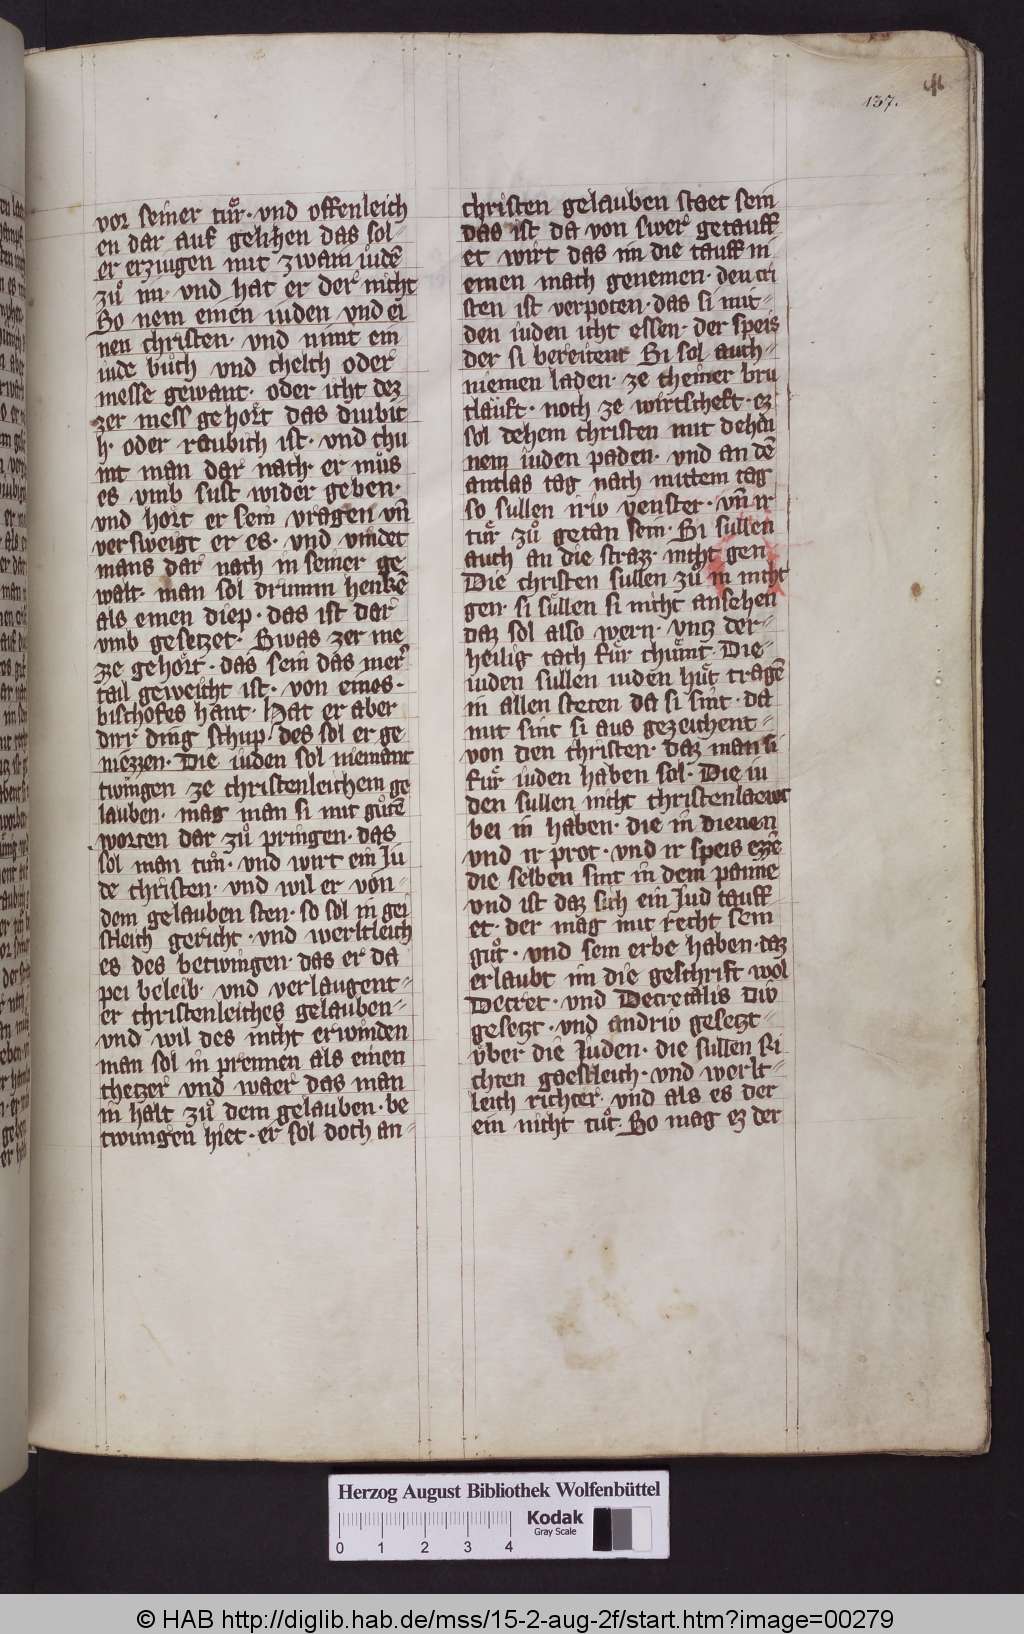 137.
vor seiner tuͤr · vnd offenleich
en dar auf gelihen das sol-
er erziugen mit zwain iudē
zuͦ im · vnd hat er der nicht
So nem einen iuden vnd ei
nen christen · vnd nimt ein
iude buͦch vnd chelch oder
messe gewant · oder icht dez
zer mess gehoͤrt das diubic
h · oder raubich ist · vnd chu
mt man dar nach · er muͦs
es vmb sust wider geben ·
vnd hoͤrt er sein vragen vn̄
versweigt er es · vnd vindet
mans dar nach in seiner ge
walt · man sol drumm henkē
als einen diep · das ist dar
vmb gesetzet · Swas zer me
zze gehoͤrt · das sein das merˀ
tail geweicht ist · von eines ·
bischofes hant · Hat er aber
dirr ding schup · des sol er ge
niezzen · Die iuden sol niemant
twingen ze christenleichem ge
lauben · mag man si mit guͦtē
worten dar zuͦ pringen · das
sol man tuͦn · vnd wirt ein Ju
de christen · vnd wil er von-
dem gelauben sten · so sol in gei
stleich gericht · vnd werltleich
es des betwingen · das er da
pei beleib · vnd verlaugent-
er christenleiches gelauben-
vnd wil des nicht erwinden
man sol in prennen als einen
chetzer vnd waer das man
in halt zuͦ dem gelauben · be
twungen hiet · er sol doch an-
christen gelauben staet sein
das ist da von swer getauff
et wirt das im die tauff ni
emen mach genemen · den cri
sten ist verpoten · das si mit-
den iuden icht essen · der speis
der si bereitent Si sol auch-
niemen laden · ze cheiner bru
tlauft · noch ze wirtscheft · ez
sol dehein christen mit dehai
nem iuden paden · vnd an dē
antlas tag nach mittem tag
so sullen iriv venster · vn̄ ir
tuͤr zuͦ getan sein · Si sullen
auch an die strazz · nicht gen
Die christen sullen zuͦ in nicht
gen · si sullen si nicht ansehen
daz sol also wern · vntz der-
heilig tach fuͤr chuͤmt · Die-
iuden sullen iuden huͤt tragē
in allen steten da si sint · da
mit sint si aus gezeichent-
von den christen · daz man si
fuͤr iuden haben sol · Die iu
den sullen nicht christenlaewt
bei in haben · die in dienen
vnd ir prot · vnd ir speis ezzē
die selben sint in dem panne
vnd ist daz sich ein Jud tauff
et · der mag mit recht sein
guͦt · vnd sein erbe haben · daz
erlaubt im die geschrift wol
Decret · vnd Decretalis Div
gesetzt · vnd andriv gesetzt-
uͤber die Juden · die sullen Ri
chten gaestleich · vnd werlt-
leich richter · vnd als es der
ein nicht tuͦt · So mag ez der
Herzog August Bibliothek Wolfenbüttel
Kodak
Gray Scale
0 1 2 3 4
© HAB http://diglib.hab.de/mss/15-2-aug-2f/start.htm?image=00279